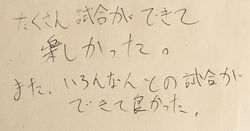 たくさん試合ができて
楽しかった。
また、いろんな人との試合が
できて良かった。